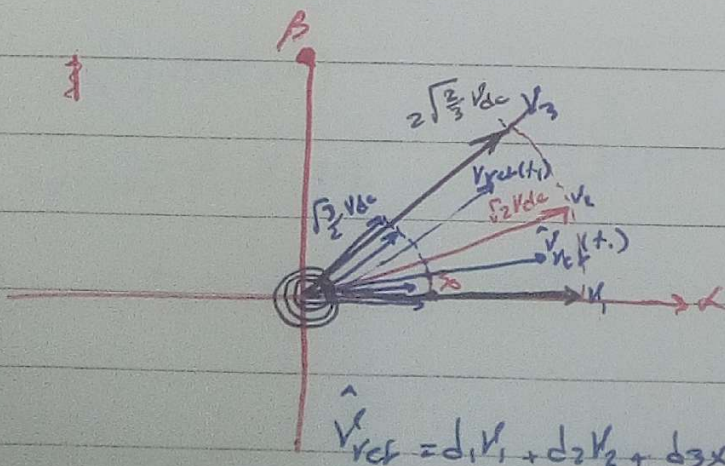 β
2√2/3 Vdc V3
Vref(t1)
√2 Vdc V2
√2/3 Vdc
V̂ref(t.)
30
V1
α
V̂ref = d1V1 + d2V2 + d3x